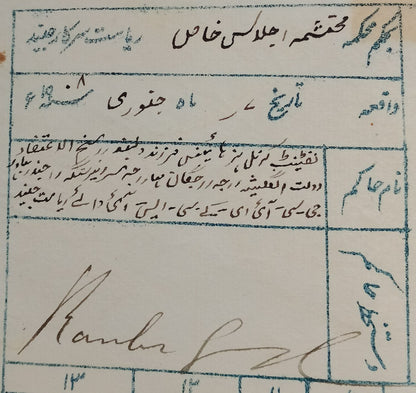 بحکم محکمہ محتشمہ اجلاس خاص ریاست سرکار جیند
واقعہ تاریخ ۷ ماہ جنوری سنہ ۱۹۳۸ء
نام حاکم
لفٹیننٹ کرنل ہز ہائینس فرزند دلبند راسخ الاعتقاد
دولت انگلیشیہ راجہ راجگان مہاراجہ سر رنبیر سنگھ راجندر بہادر
جی۔سی۔آئی ای۔ کے۔سی۔ایس۔آئی والئے ریاست جیند
دستخط حاکم
Ranbir
۱۳ ۱۲ ۱۱